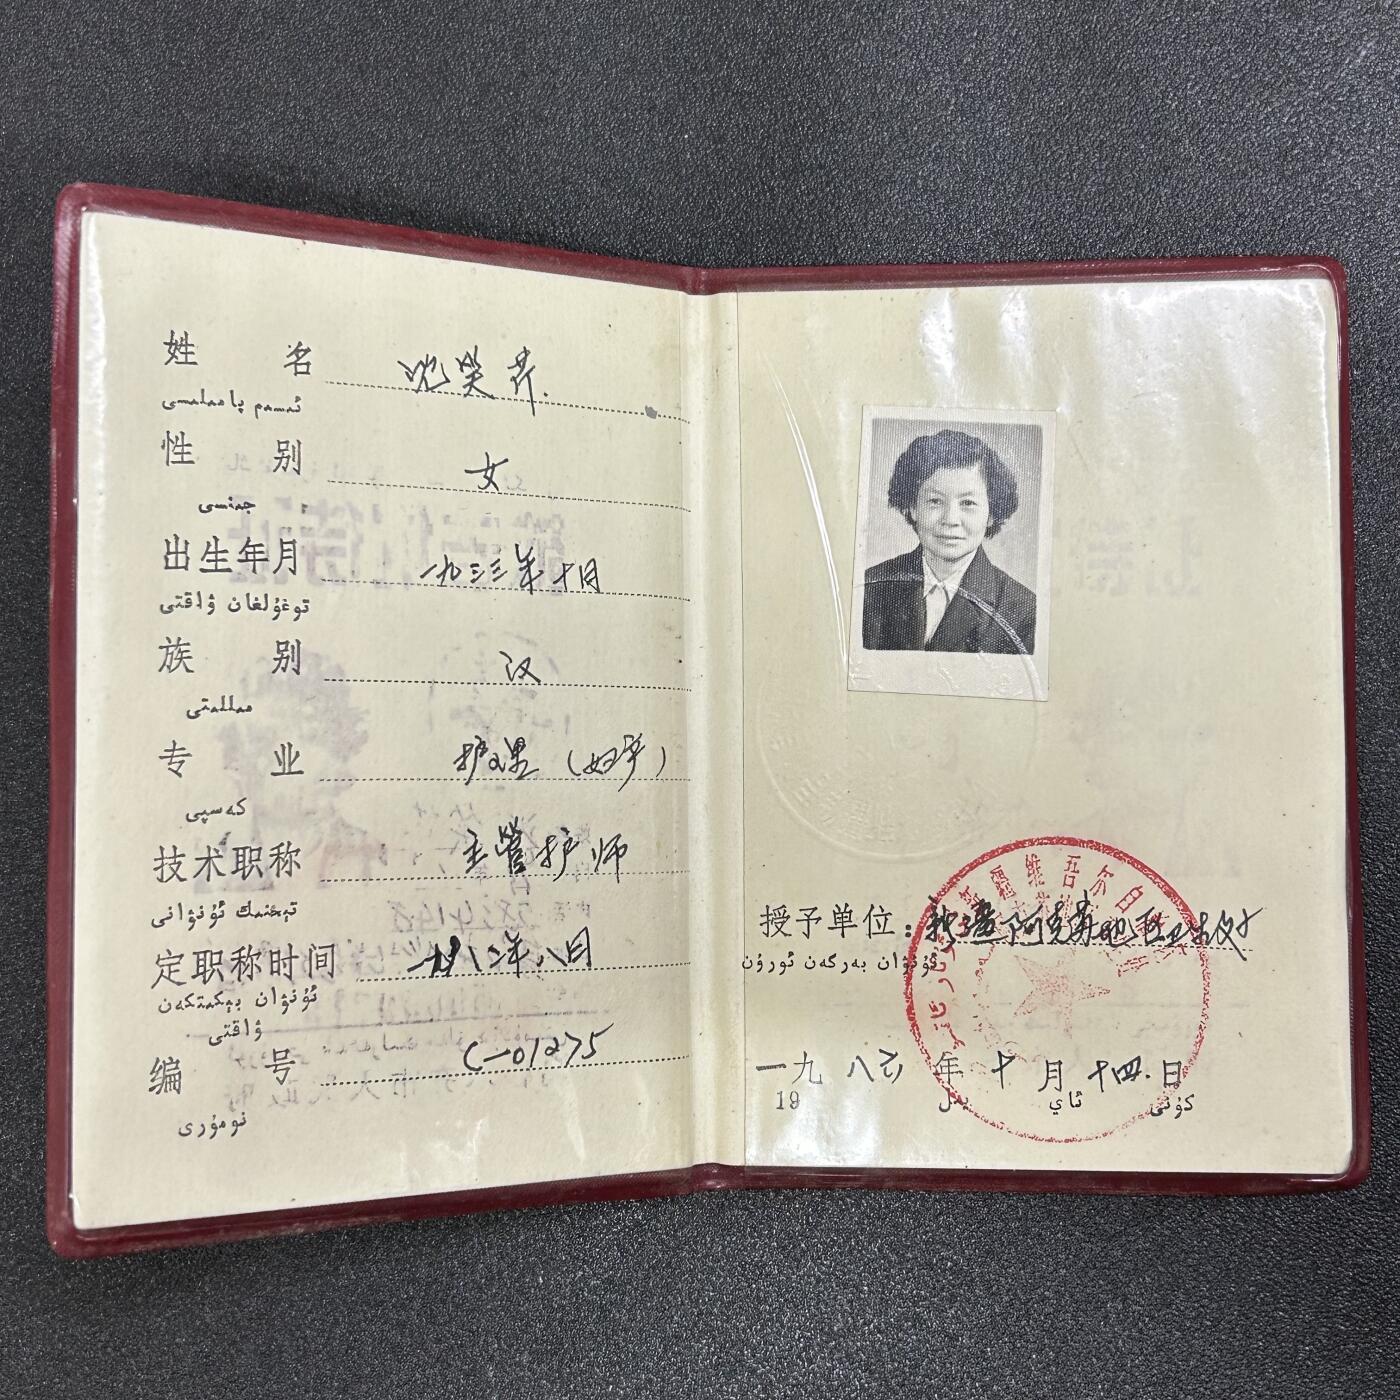 姓 名 沈笑芹.
ئىسىم پامىلىسى
性 别 女
جىنسى
出生年月 一九三三年十月
تۇغۇلغان ۋاقتى
族 别 汉
مىللىتى
专 业 护理（妇产）
كەسپى
技术职称 主管护师
تېخنىك ئۇنۋانى
定职称时间 一九八二年八月
ئۇنۋان بېكىتكەن
ۋاقتى
编 号 C-01275
نومۇرى
新疆维吾尔自
授予单位：新疆阿克苏地区卫生处
ئۇنۋان بەرگەن ئورۇن
一九八六年十月十四.日
19 يىل ئاي كۈنى